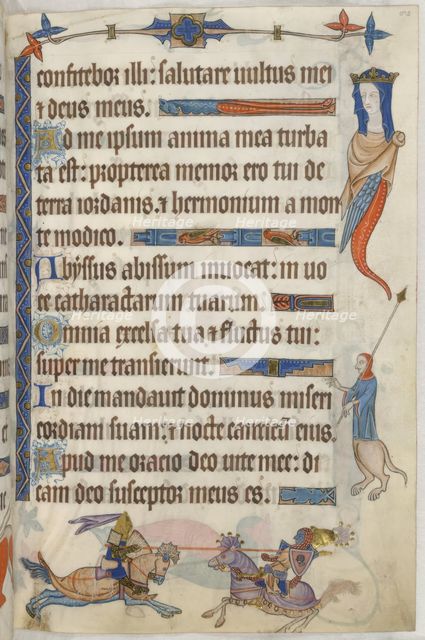 confitebor illi: salutare uultus mei
& deus meus.
Ad me ipsum anima mea turba
ta est: propterea memor ero tui de
terra iordanis & hermonium a mon
te modico.
Abyssus abissum inuocat: in uo
ce catharactarum tuarum.
Omnia excelsa tua & fluctus tui:
super me transierunt.
In die mandauit dominus miseri
cordiam suam: & nocte canticum eius.
Apud me oracio deo uite mee: di
cam deo susceptor meus es.
Heritage
Heritage
Heritage
Heritage
Heritage
Heritage
Heritage
Heritage